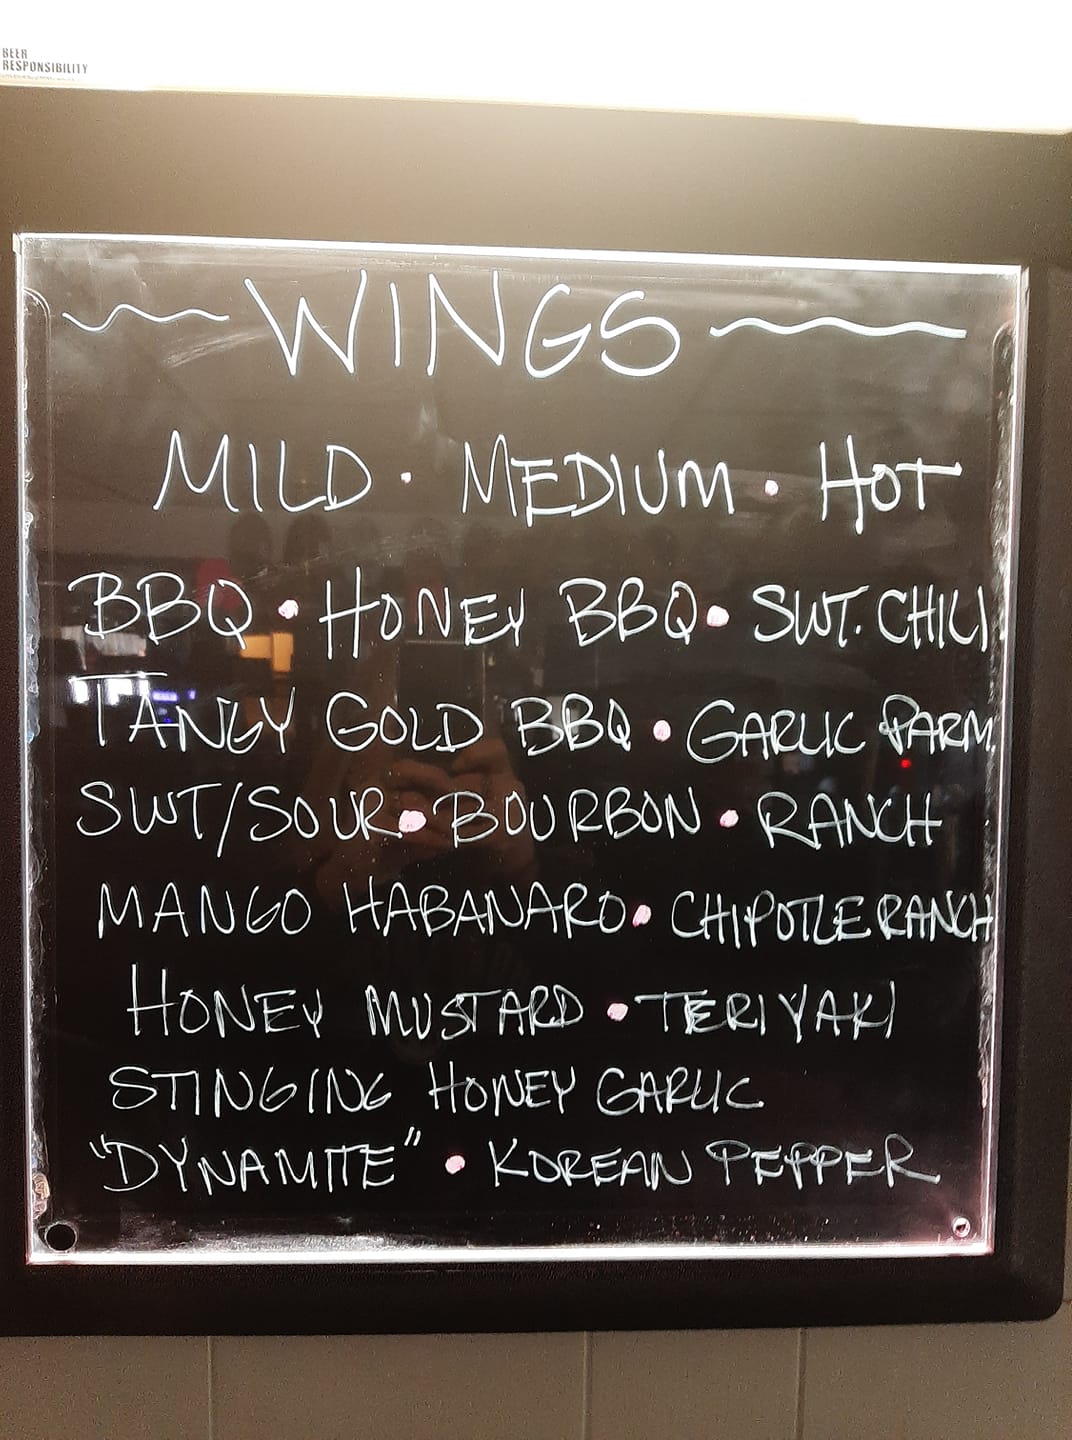 BEER
RESPONSIBILITY
WINGS
MILD • MEDIUM • HOT
BBQ • HONEY BBQ • SWT. CHILI
TANGY GOLD BBQ • GARLIC PARM.
SWT/SOUR • BOURBON • RANCH
MANGO HABANARO • CHIPOTLE RANCH
HONEY MUSTARD • TERIYAKI
STINGING HONEY GARLIC
"DYNAMITE" • KOREAN PEPPER